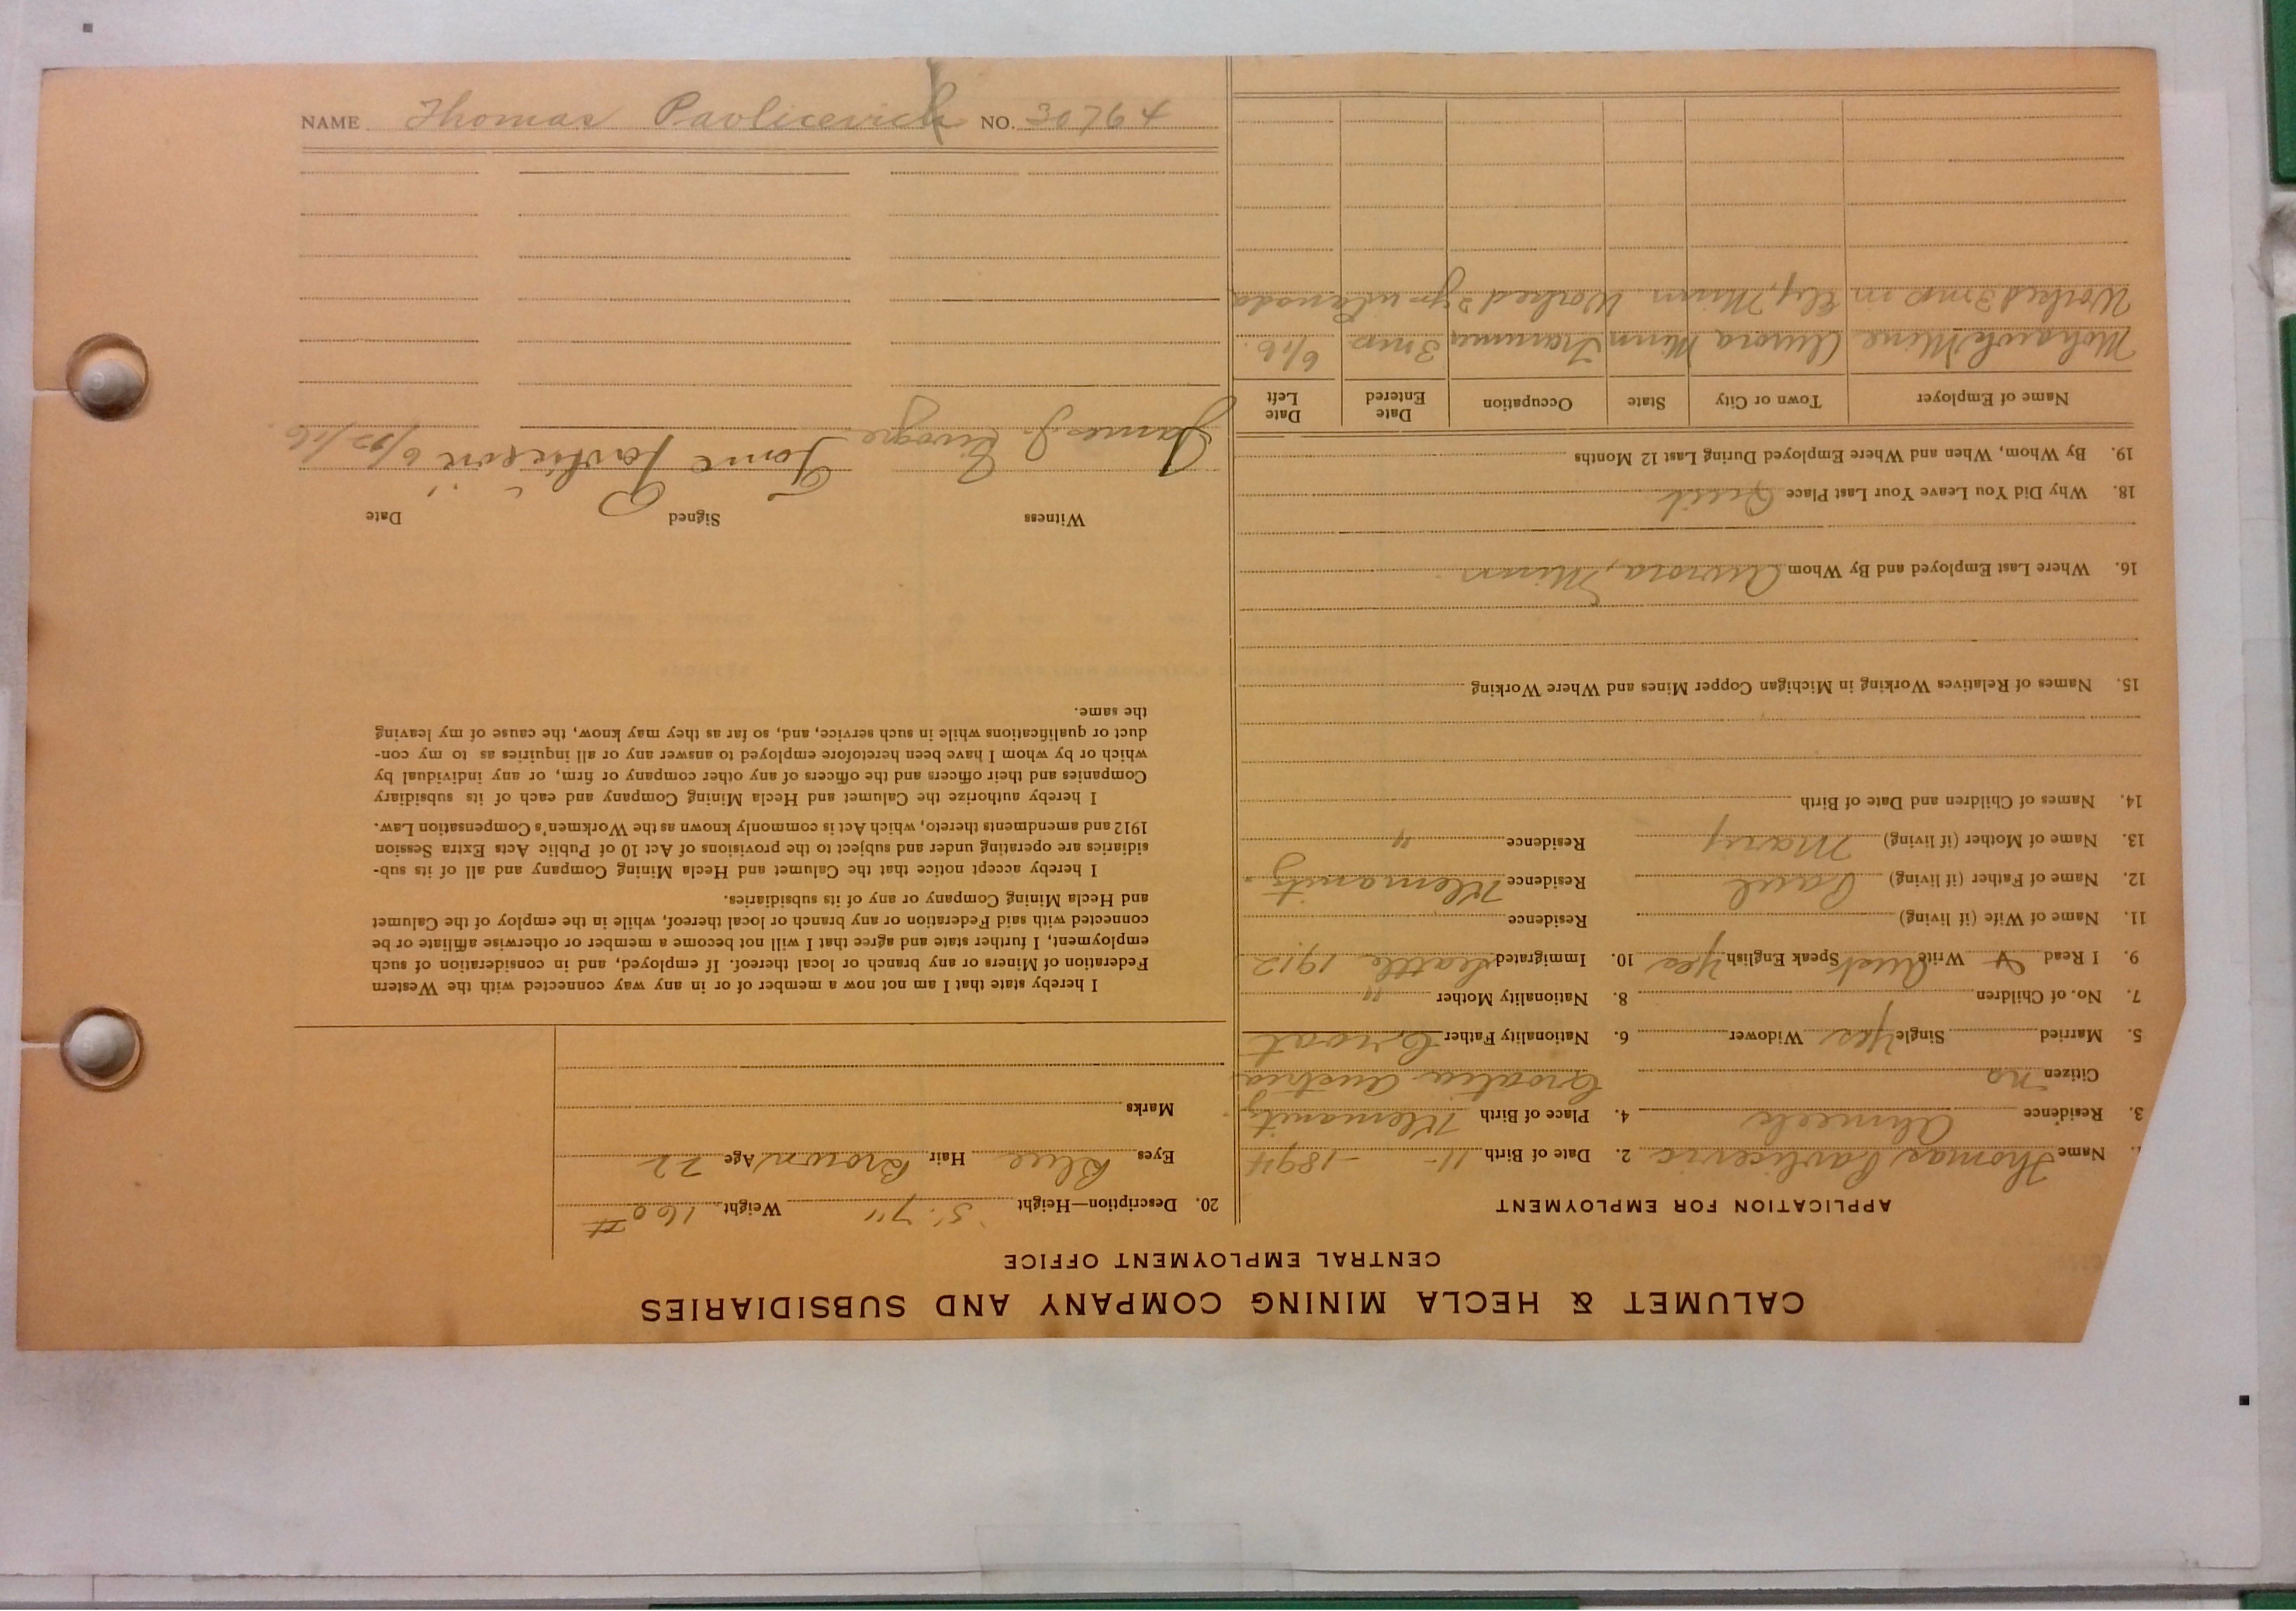 CALUMET & HECLA MINING COMPANY AND SUBSIDIARIES
CENTRAL EMPLOYMENT OFFICE
APPLICATION FOR EMPLOYMENT
1. Name Thomas Pavlicevic 2. Date of Birth 11 - - 1894
3. Residence Ahmeek 4. Place of Birth Klemanitz
Citizen no Croatia Austria
5. Married Single Yes Widower 6. Nationality Father Croat
7. No. of Children 8. Nationality Mother "
9. I Read & Write Aust Speak English Yes 10. Immigrated Seattle 1912
11. Name of Wife (if living) Residence
12. Name of Father (if living) Paul Residence Klemanitz
13. Name of Mother (if living) Mary Residence "
14. Names of Children and Date of Birth
15. Names of Relatives Working in Michigan Copper Mines and Where Working
16. Where Last Employed and By Whom Aurora, Minn
18. Why Did You Leave Your Last Place Quit
19. By Whom, When and Where Employed During Last 12 Months
Name of Employer Town or City State Occupation Date Entered Date Left
Mohawk Mine Aurora Minn Tramming 3 mos 6/16.
Worked 3 mos in Ely, Minn Worked 2 yrs in Canada
20. Description—Height 5' 7" Weight 160 #
Eyes Blue Hair Brown Age 22
Marks
I hereby state that I am not now a member of or in any way connected with the Western
Federation of Miners or any branch or local thereof. If employed, and in consideration of such
employment, I further state and agree that I will not become a member or otherwise affiliate or be
connected with said Federation or any branch or local thereof, while in the employ of the Calumet
and Hecla Mining Company or any of its subsidiaries.
I hereby accept notice that the Calumet and Hecla Mining Company and all of its sub-
sidiaries are operating under and subject to the provisions of Act 10 of Public Acts Extra Session
1912 and amendments thereto, which Act is commonly known as the Workmen's Compensation Law.
I hereby authorize the Calumet and Hecla Mining Company and each of its subsidiary
Companies and their officers and the officers of any other company or firm, or any individual by
which or by whom I have been heretofore employed to answer any or all inquiries as to my con-
duct or qualifications while in such service, and, so far as they may know, the cause of my leaving
the same.
Witness Signed Date
James J. Tome Pavlicević 6/22/16.
NAME Thomas Pavlicevich NO. 30764